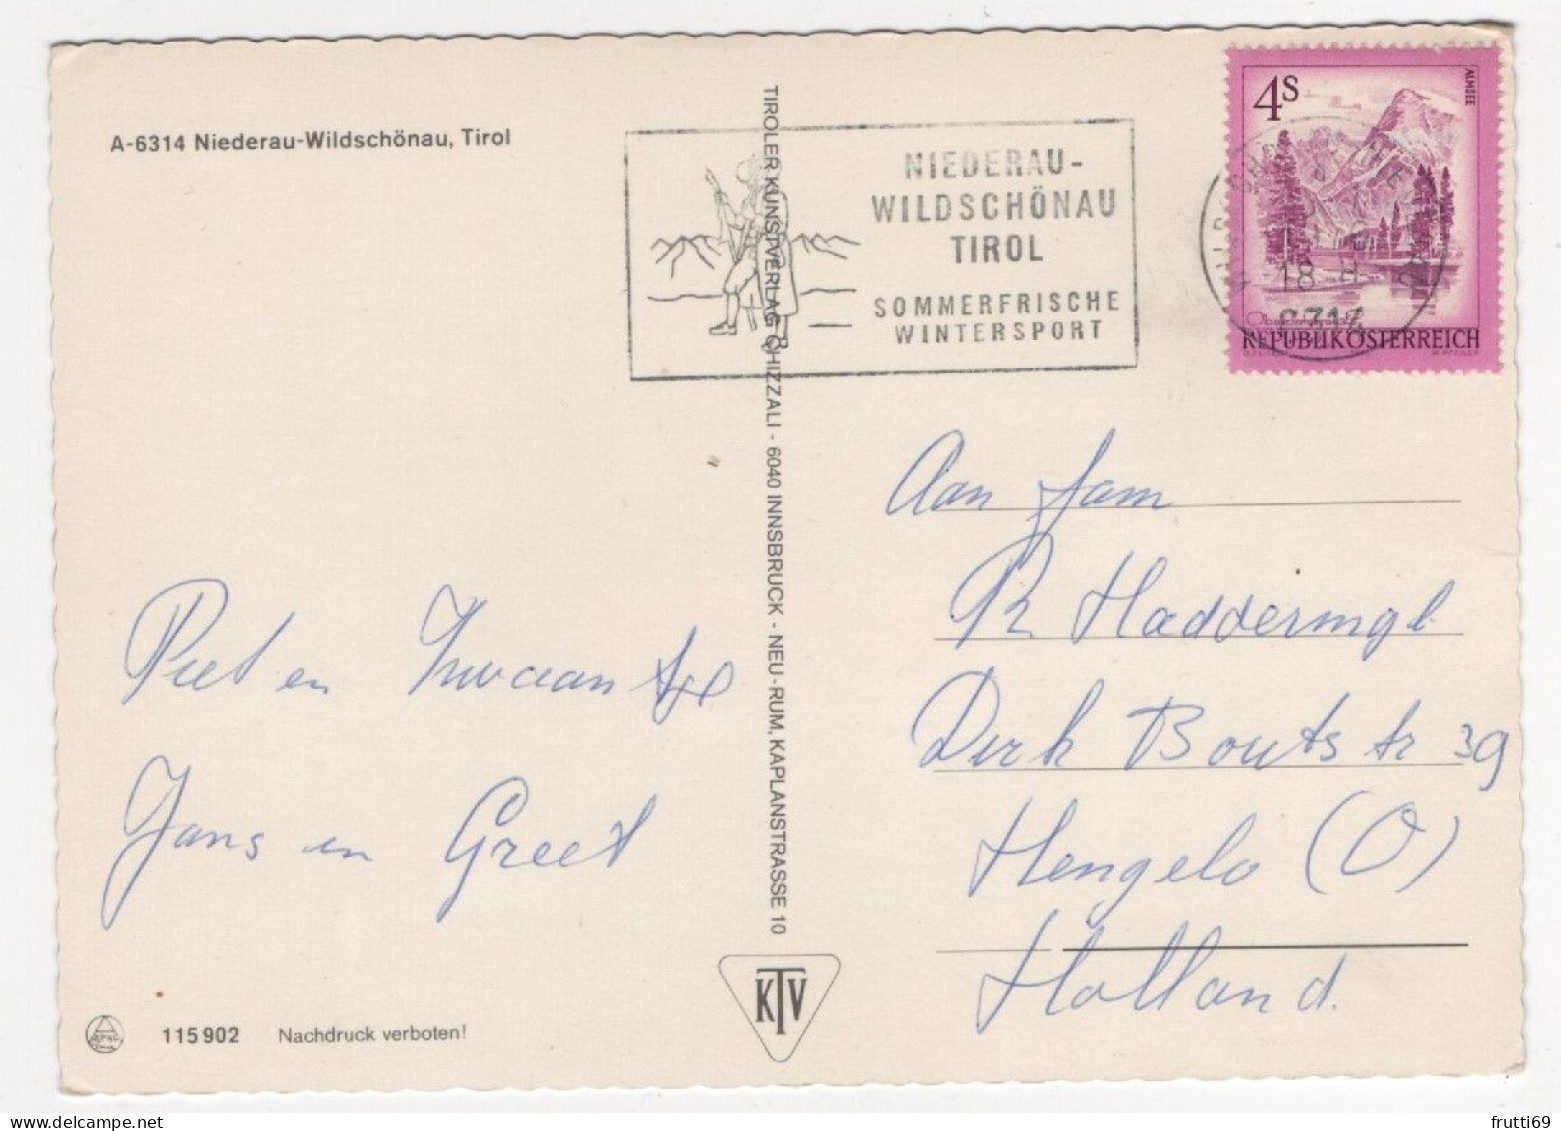 A-6314 Niederau-Wildschönau, Tirol
TIROLER KUNSTVERLAG CHIZZALI - 6040 INNSBRUCK - NEU-RUM, KAPLANSTRASSE 10
NIEDERAU-
WILDSCHÖNAU
TIROL
SOMMERFRISCHE
WINTERSPORT
4S
ALMSEE
REPUBLIK ÖSTERREICH
18
Piet en
Jans en Greet
Aan fam
R Hadderingh
Dirk Bouts str 39
Hengelo (O)
Holland.
KTV
115902 Nachdruck verboten!
frutti69